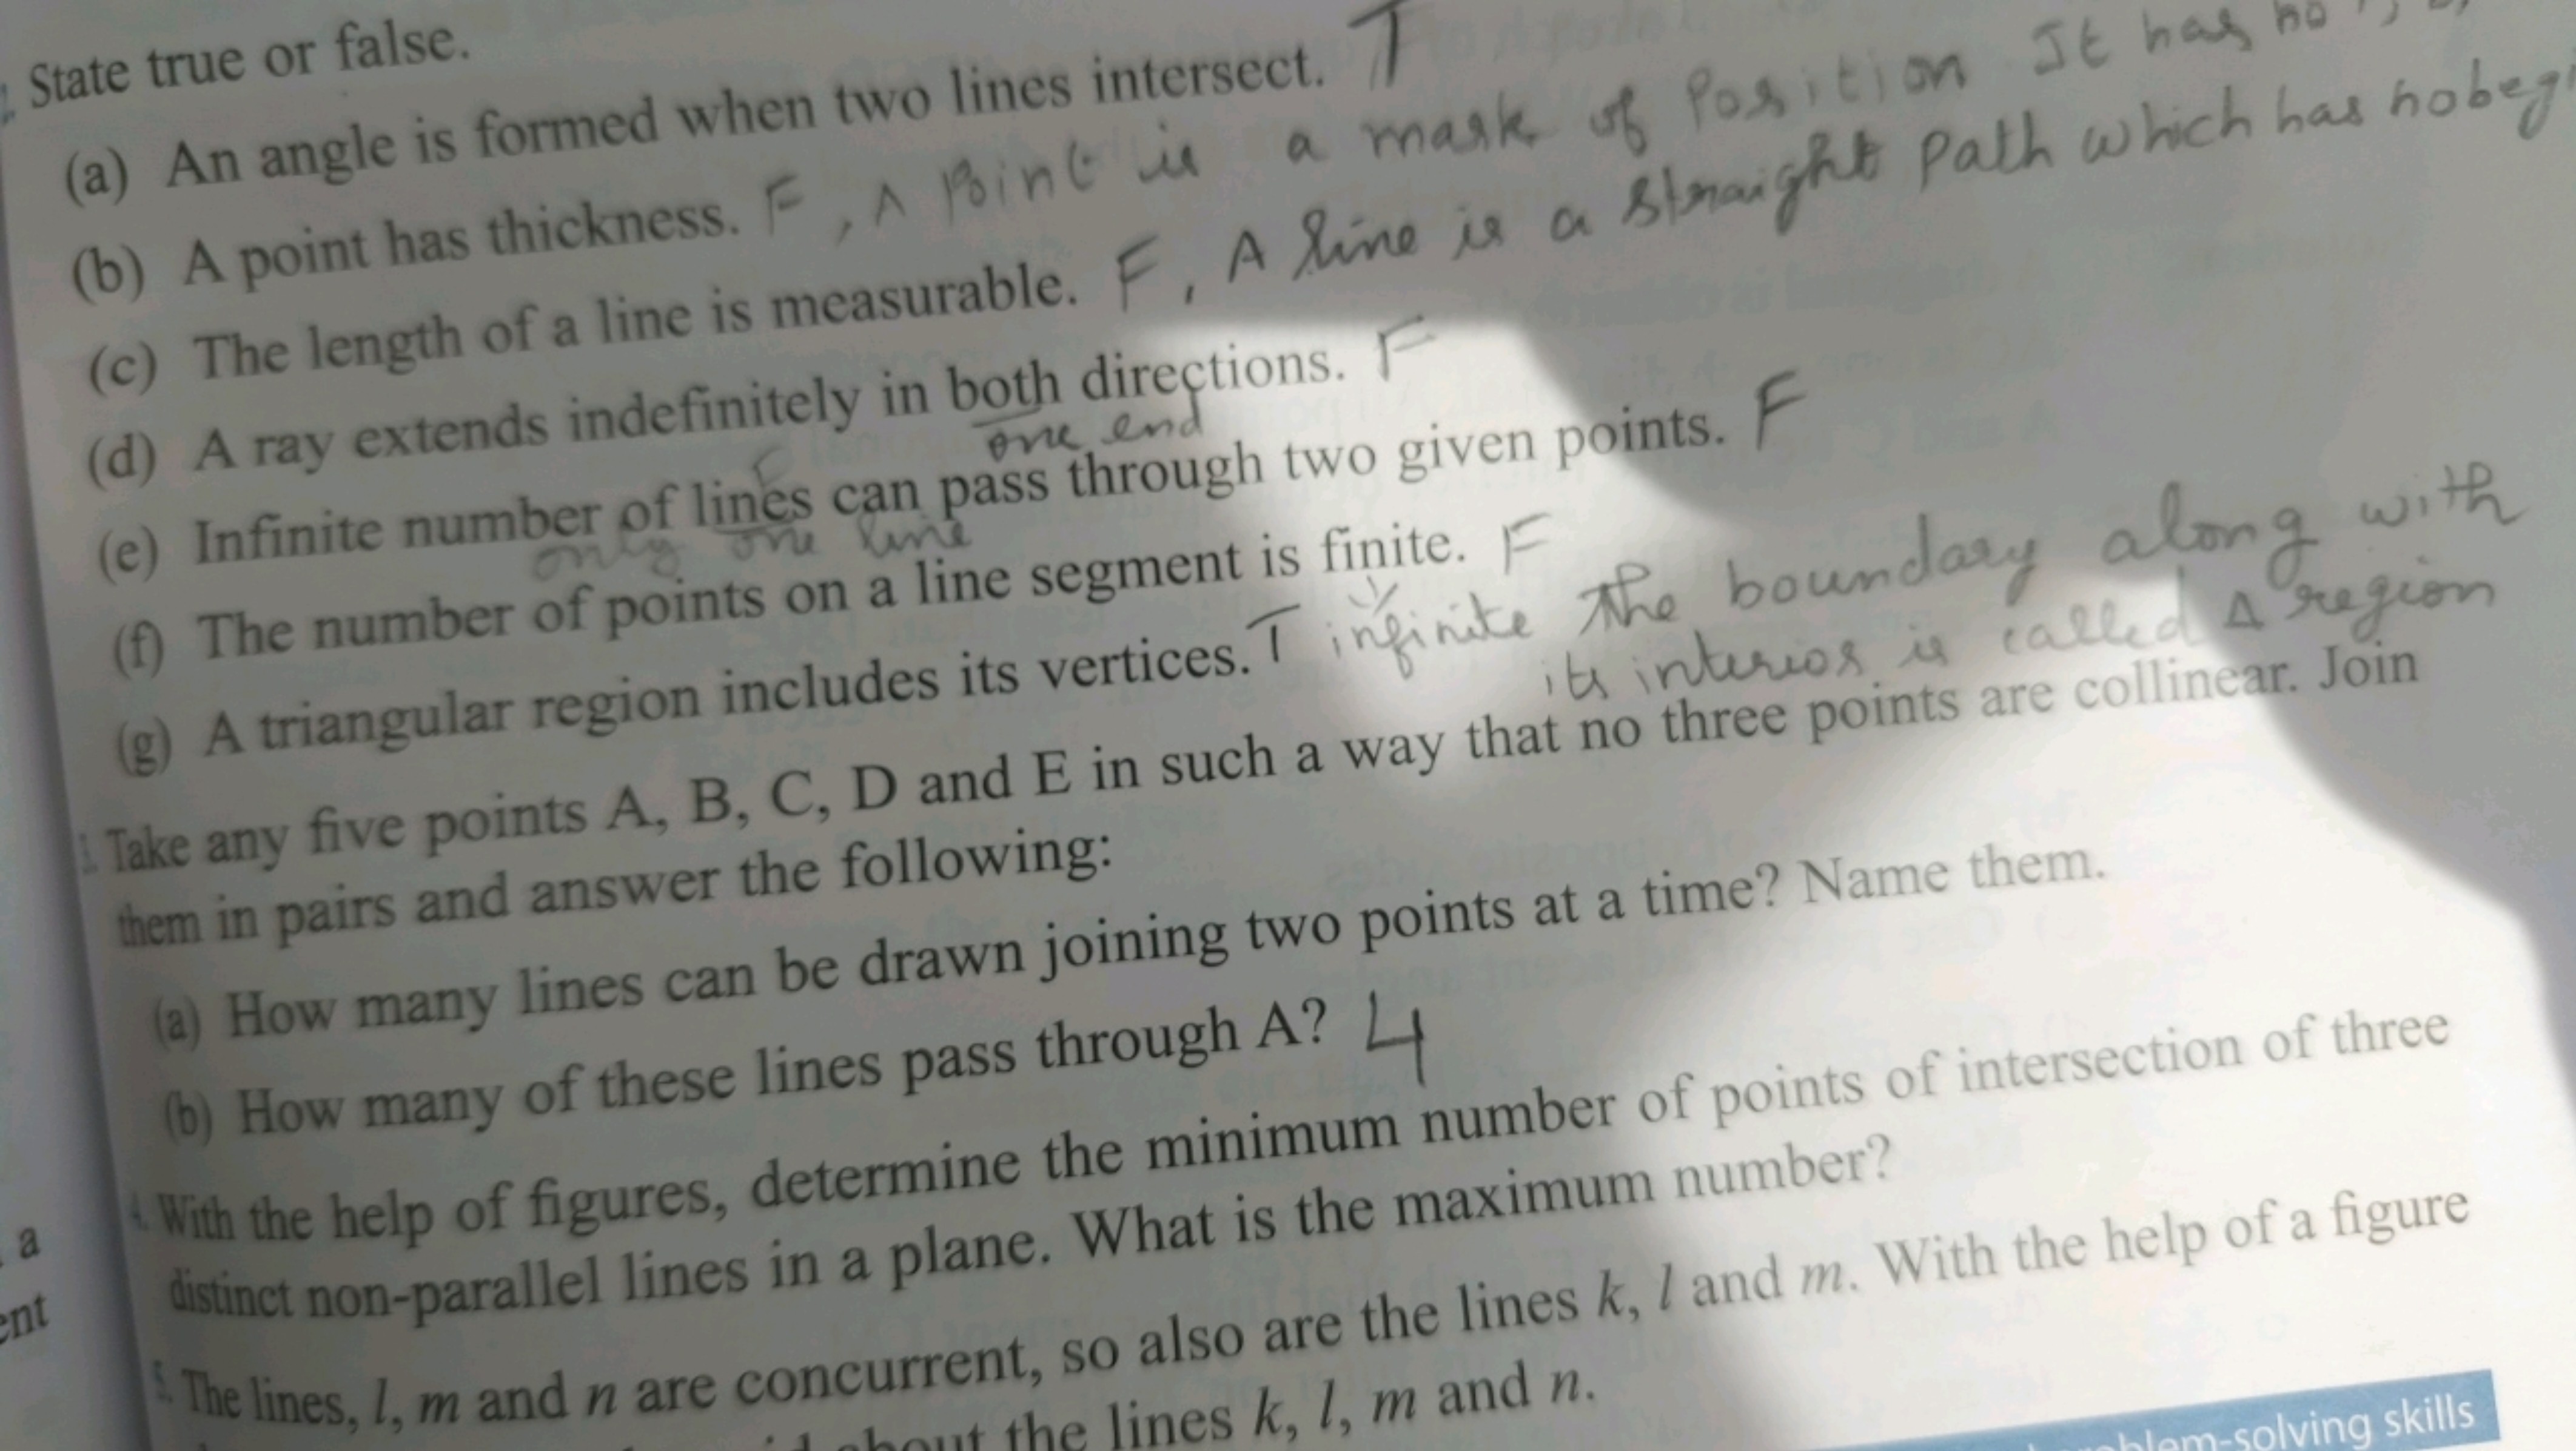 State true or false.
(a) An angle is formed when two lines intersect. T
(b) A point has thickness. F, A Point is a mask of Position It has no
(c) The length of a line is measurable. F, A line is a straight Path which has no
(d) A ray extends indefinitely in both directions. F
one end
(e) Infinite number of lines can pass through two given points. F
only one line
(f) The number of points on a line segment is finite. F
infinite
(g) A triangular region includes its vertices. T The boundary along with
its interior is called Δ region
Take any five points A, B, C, D and E in such a way that no three points are collinear. Join
them in pairs and answer the following:
(a) How many lines can be drawn joining two points at a time? Name them.
(b) How many of these lines pass through A? 4
With the help of figures, determine the minimum number of points of intersection of three
distinct non-parallel lines in a plane. What is the maximum number?
5. The lines, l, m and n are concurrent, so also are the lines k, l and m. With the help of a figure
about the lines k, l, m and n.
a
ent
blem-solving skills